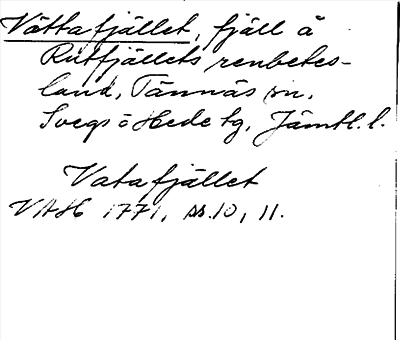 Våttafjället, fjäll å
Rutfjällets renbetes-
land, Tännäs sn,
Svegs o Hede tg, Jämtl. l.
Vatafjället
VAH 1771, ss. 10, 11.